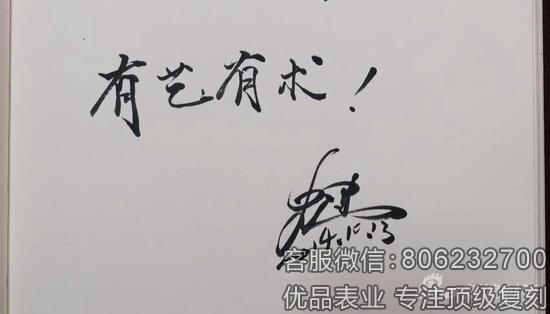 有艺有术！
14.10.23
客服微信:806232700
优品表业 专注顶级复刻